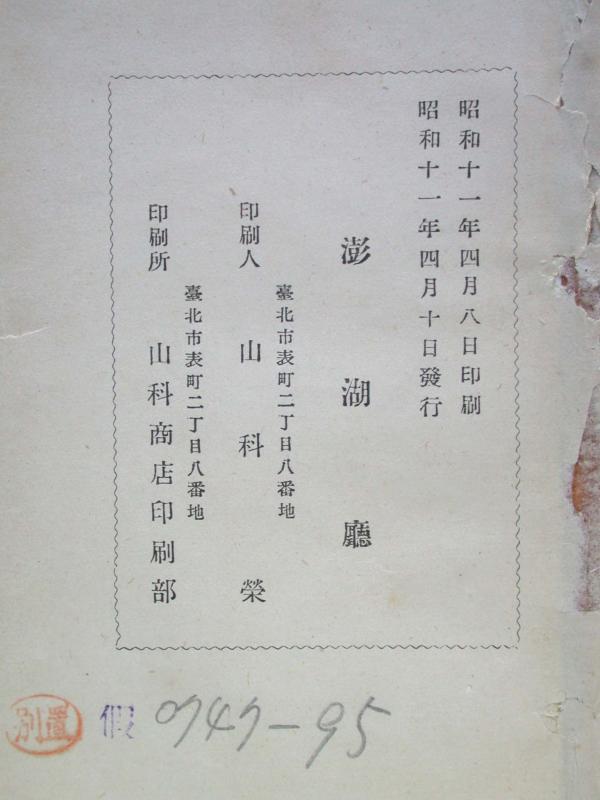 昭和十一年四月八日印刷
昭和十一年四月十日發行
澎湖廳
臺北市表町二丁目八番地
印刷人 山科榮
臺北市表町二丁目八番地
印刷所 山科商店印刷部
別置
假
0747-95